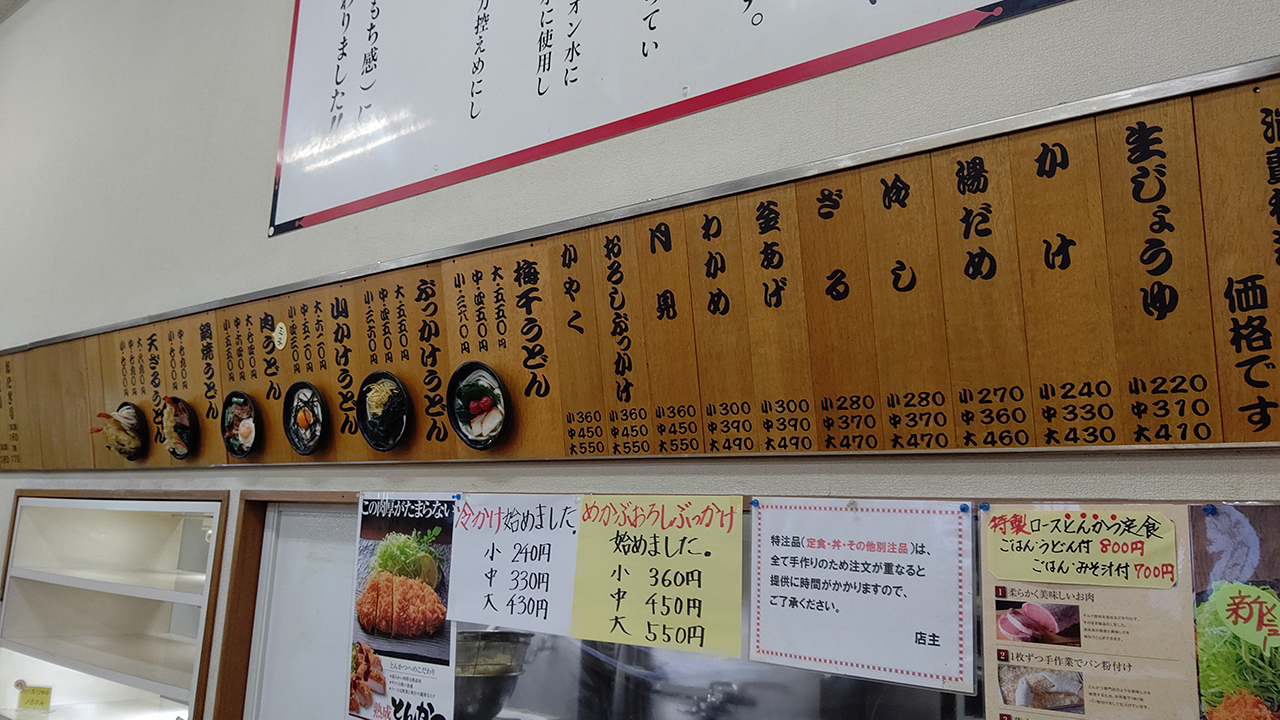 す。
ってい
オン水に
分に使用し
方控えめにし
もち感）に
わりました!!
価格です
生じょうゆ
小220
中310
大410
かけ
小240
中330
大430
湯だめ
小270
中360
大460
冷し
小280
中370
大470
ざる
小280
中370
大470
釜あげ
小300
中390
大490
わかめ
小300
中390
大490
月見
小360
中450
大550
おろしぶっかけ
小360
中450
大550
かやく
小360
中450
大550
梅干うどん
大・五五〇円
中・四五〇円
小・三六〇円
ぶっかけうどん
大・五五〇円
中・四五〇円
小・三六〇円
山かけうどん
大・六一〇円
中・五一〇円
小・四二〇円
肉うどん
大・七四〇円
中・六四〇円
小・五五〇円
鍋焼うどん
中・七九〇円
小・七〇〇円
天ざるうどん
大・八九〇円
中・七九〇円
小・七〇〇円
この肉厚がたまらない
とんかつへのこだわり
熟成とんかつ
冷かけ始めました。
小 240円
中 330円
大 430円
めかぶおろしぶっかけ
始めました。
小 360円
中 450円
大 550円
特注品（定食・丼・その他別注品）は、
全て手作りのため注文が重なると
提供に時間がかかりますので、
ご了承ください。
店主
特製ロースとんかつ定食
ごはん・うどん付 800円
ごはん・みそ汁付 700円
1 柔らかく美味しいお肉
2 1枚ずつ手作業でパン粉付け